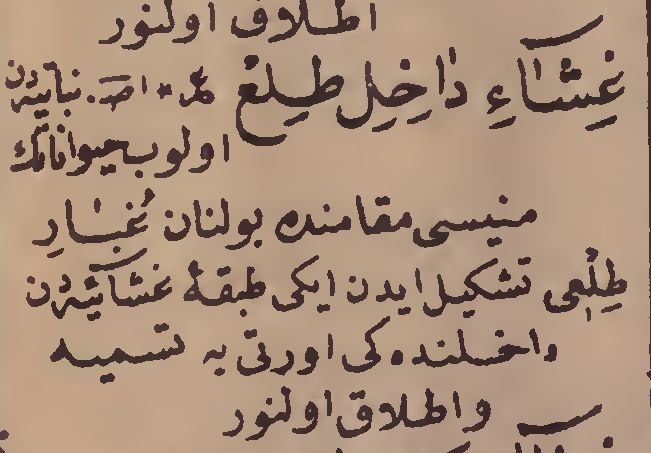 اطلاق اولنور
غِشَاءِ دَاخِلِ طِلْع نباتیه‌دن
اولوب حیواناتك
منیسی مقامنده بولنان غُبَارِ
طِلْعِی تشکیل ایدن ایکی طبقۀ غشائیه‌دن
داخلنده‌کی اورتی یه تسمیه
و اطلاق اولنور